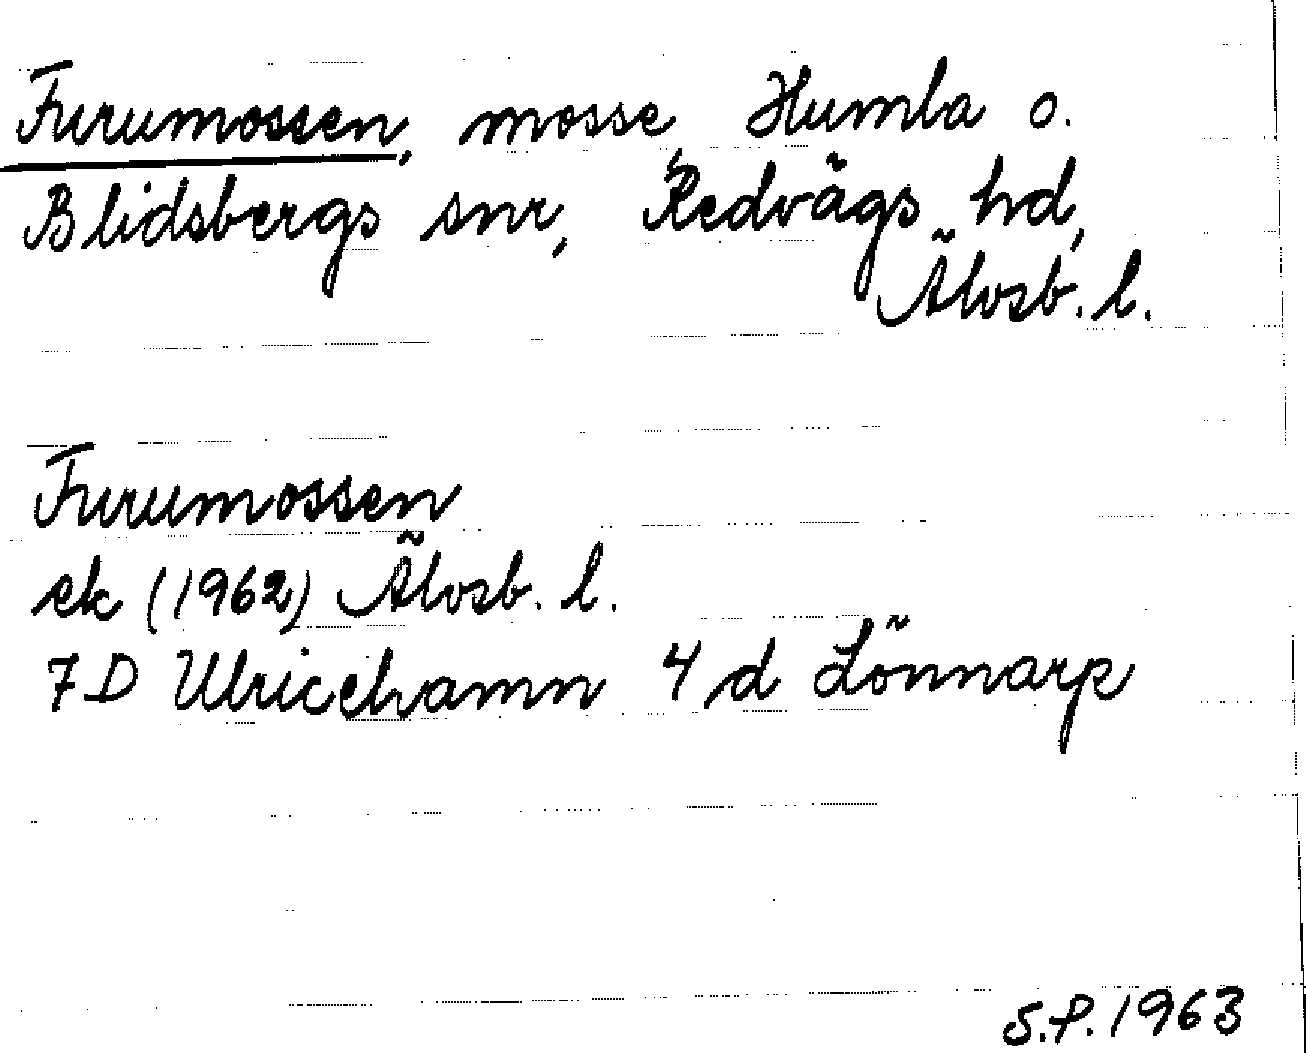 Furumossen, mosse, Humla o.
Blidsbergs snr, Redvägs hd,
Älvsb. l.
Furumossen
ek (1962) Älvsb. l.
7D Ulricehamn 4 d Lönnarp
S.P. 1963